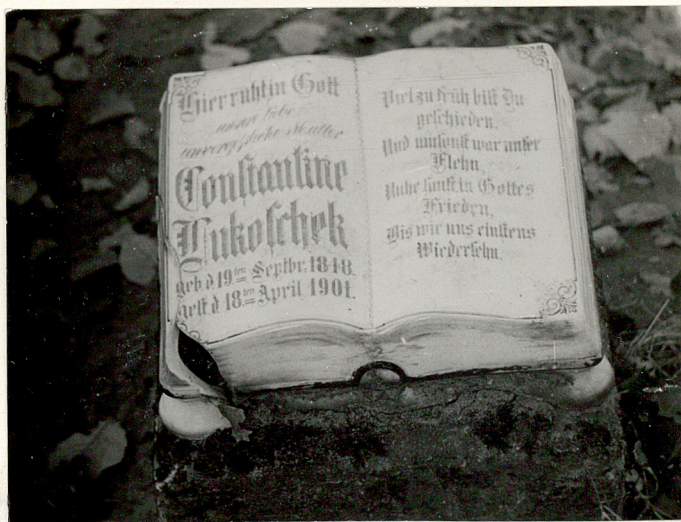 Hier ruht in Gott
unsere liebe
unvergeßliche Mutter
Constantine
Lukoschek
geb. d. 19ten Septbr. 1848.
gest. d. 18ten April 1901.
Viel zu früh bist Du
geschieden,
Und umsonst war unser
Flehn,
Ruhe sanft in Gottes
Frieden,
Bis wir uns einstens
Wiedersehn.